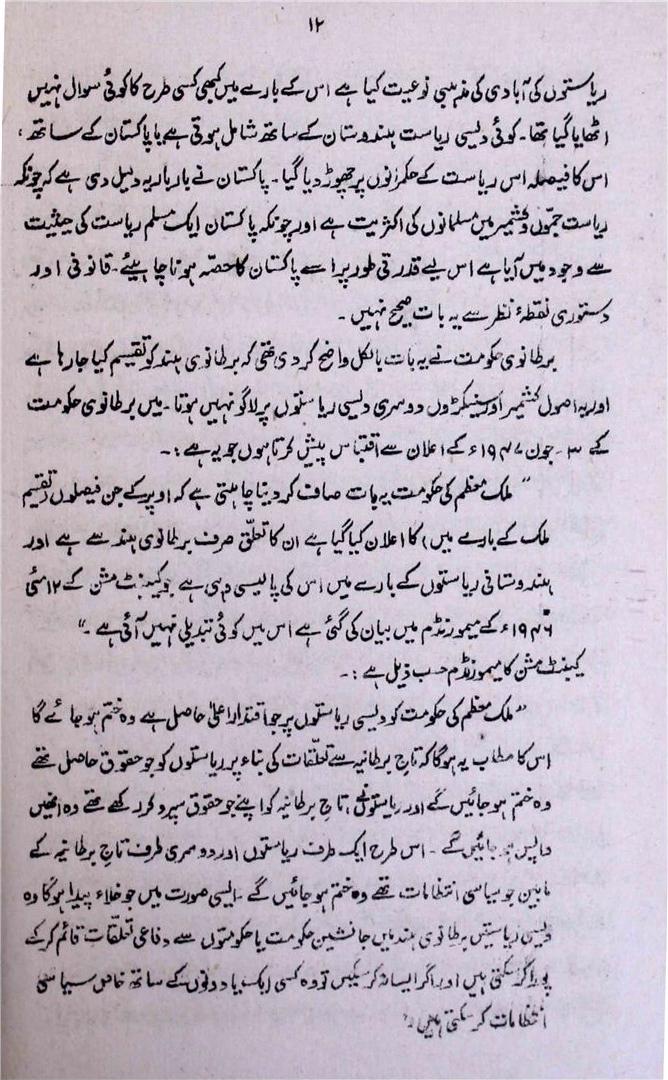 ۱۲
ریاستوں کی آبادی کی مذہبی نوعیت کیا ہے اس کے بارے میں کبھی کسی طرح کا کوئی سوال نہیں
اٹھایا گیا تھا۔ کوئی دیسی ریاست ہندوستان کے ساتھ شامل ہوتی ہے یا پاکستان کے ساتھ،
اس کا فیصلہ اس ریاست کے حکمرانوں پر چھوڑ دیا گیا۔ پاکستان نے بار بار یہ دلیل دی ہے کہ چونکہ
ریاست جموّں و کشمیر میں مسلمانوں کی اکثریت ہے اور چونکہ پاکستان ایک مسلم ریاست کی حیثیت
سے وجود میں آیا ہے اس لیے قدرتی طور پر اسے پاکستان کا حصّہ ہونا چاہیئے۔ قانونی اور
دستوری نقطۂ نظر سے یہ بات صحیح نہیں۔
برطانوی حکومت نے یہ بات بالکل واضح کر دی تھی کہ برطانوی ہند کو تقسیم کیا جارہا ہے
اور یہ اصول کشمیر اور سینکڑوں دوسری دیسی ریاستوں پر لاگو نہیں ہوتا۔ میں برطانوی حکومت
کے ۳۔ جون ۱۹۴۷ء کے اعلان سے اقتباس پیش کرتا ہوں جو یہ ہے:۔
"ملک معظم کی حکومت یہ بات صاف کر دینا چاہتی ہے کہ اوپر کے جن فیصلوں (تقسیم
ملک کے بارے میں) کا اعلان کیا گیا ہے ان کا تعلّق صرف برطانوی ہند سے ہے اور
ہندوستانی ریاستوں کے بارے میں اس کی پالیسی وہی ہے جو کیبنٹ مشن کے ۱۲ مئی
۱۹۴۶ء کے میمورنڈم میں بیان کی گئی ہے اس میں کوئی تبدیلی نہیں آئی ہے۔"
کیبنٹ مشن کا میمورنڈم حسب ذیل ہے:۔
"ملک معظم کی حکومت کو دیسی ریاستوں پر جو اقتدار اعلیٰ حاصل ہے وہ ختم ہو جائے گا
اس کا مطلب یہ ہوگا کہ تاج برطانیہ سے تعلّقات کی بناء پر ریاستوں کو جو حقوق حاصل تھے
وہ ختم ہو جائیں گے اور ریاستوں نے، تاج برطانیہ کو اپنے جو حقوق سپرد کر رکھے تھے وہ انھیں
واپس ہو جائیں گے۔ اس طرح ایک طرف ریاستوں اور دوسری طرف تاج برطانیہ کے
مابین جو سیاسی انتظامات تھے وہ ختم ہو جائیں گے۔ ایسی صورت میں جو خلاء پیدا ہوگا وہ
دیسی ریاستیں برطانوی ہند میں جانشین حکومت یا حکومتوں سے دفاعی تعلّقات قائم کرکے
پورا کرسکتی ہیں اور اگر ایسا نہ کرسکیں تو وہ کسی ایک یا دونوں کے ساتھ خاص سیاسی
انتظامات کر سکتی ہیں۔"